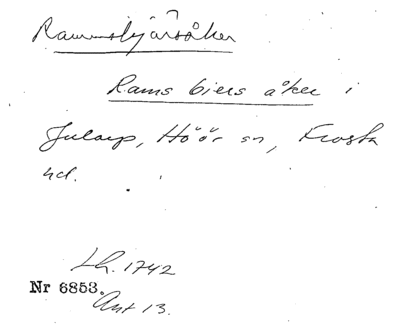 Ramsbjärsåker
Rams biers åker i
Jularp, Höör sn, Frosta
hd.
Lh. 1742
Nr 6853.
Akt 13.